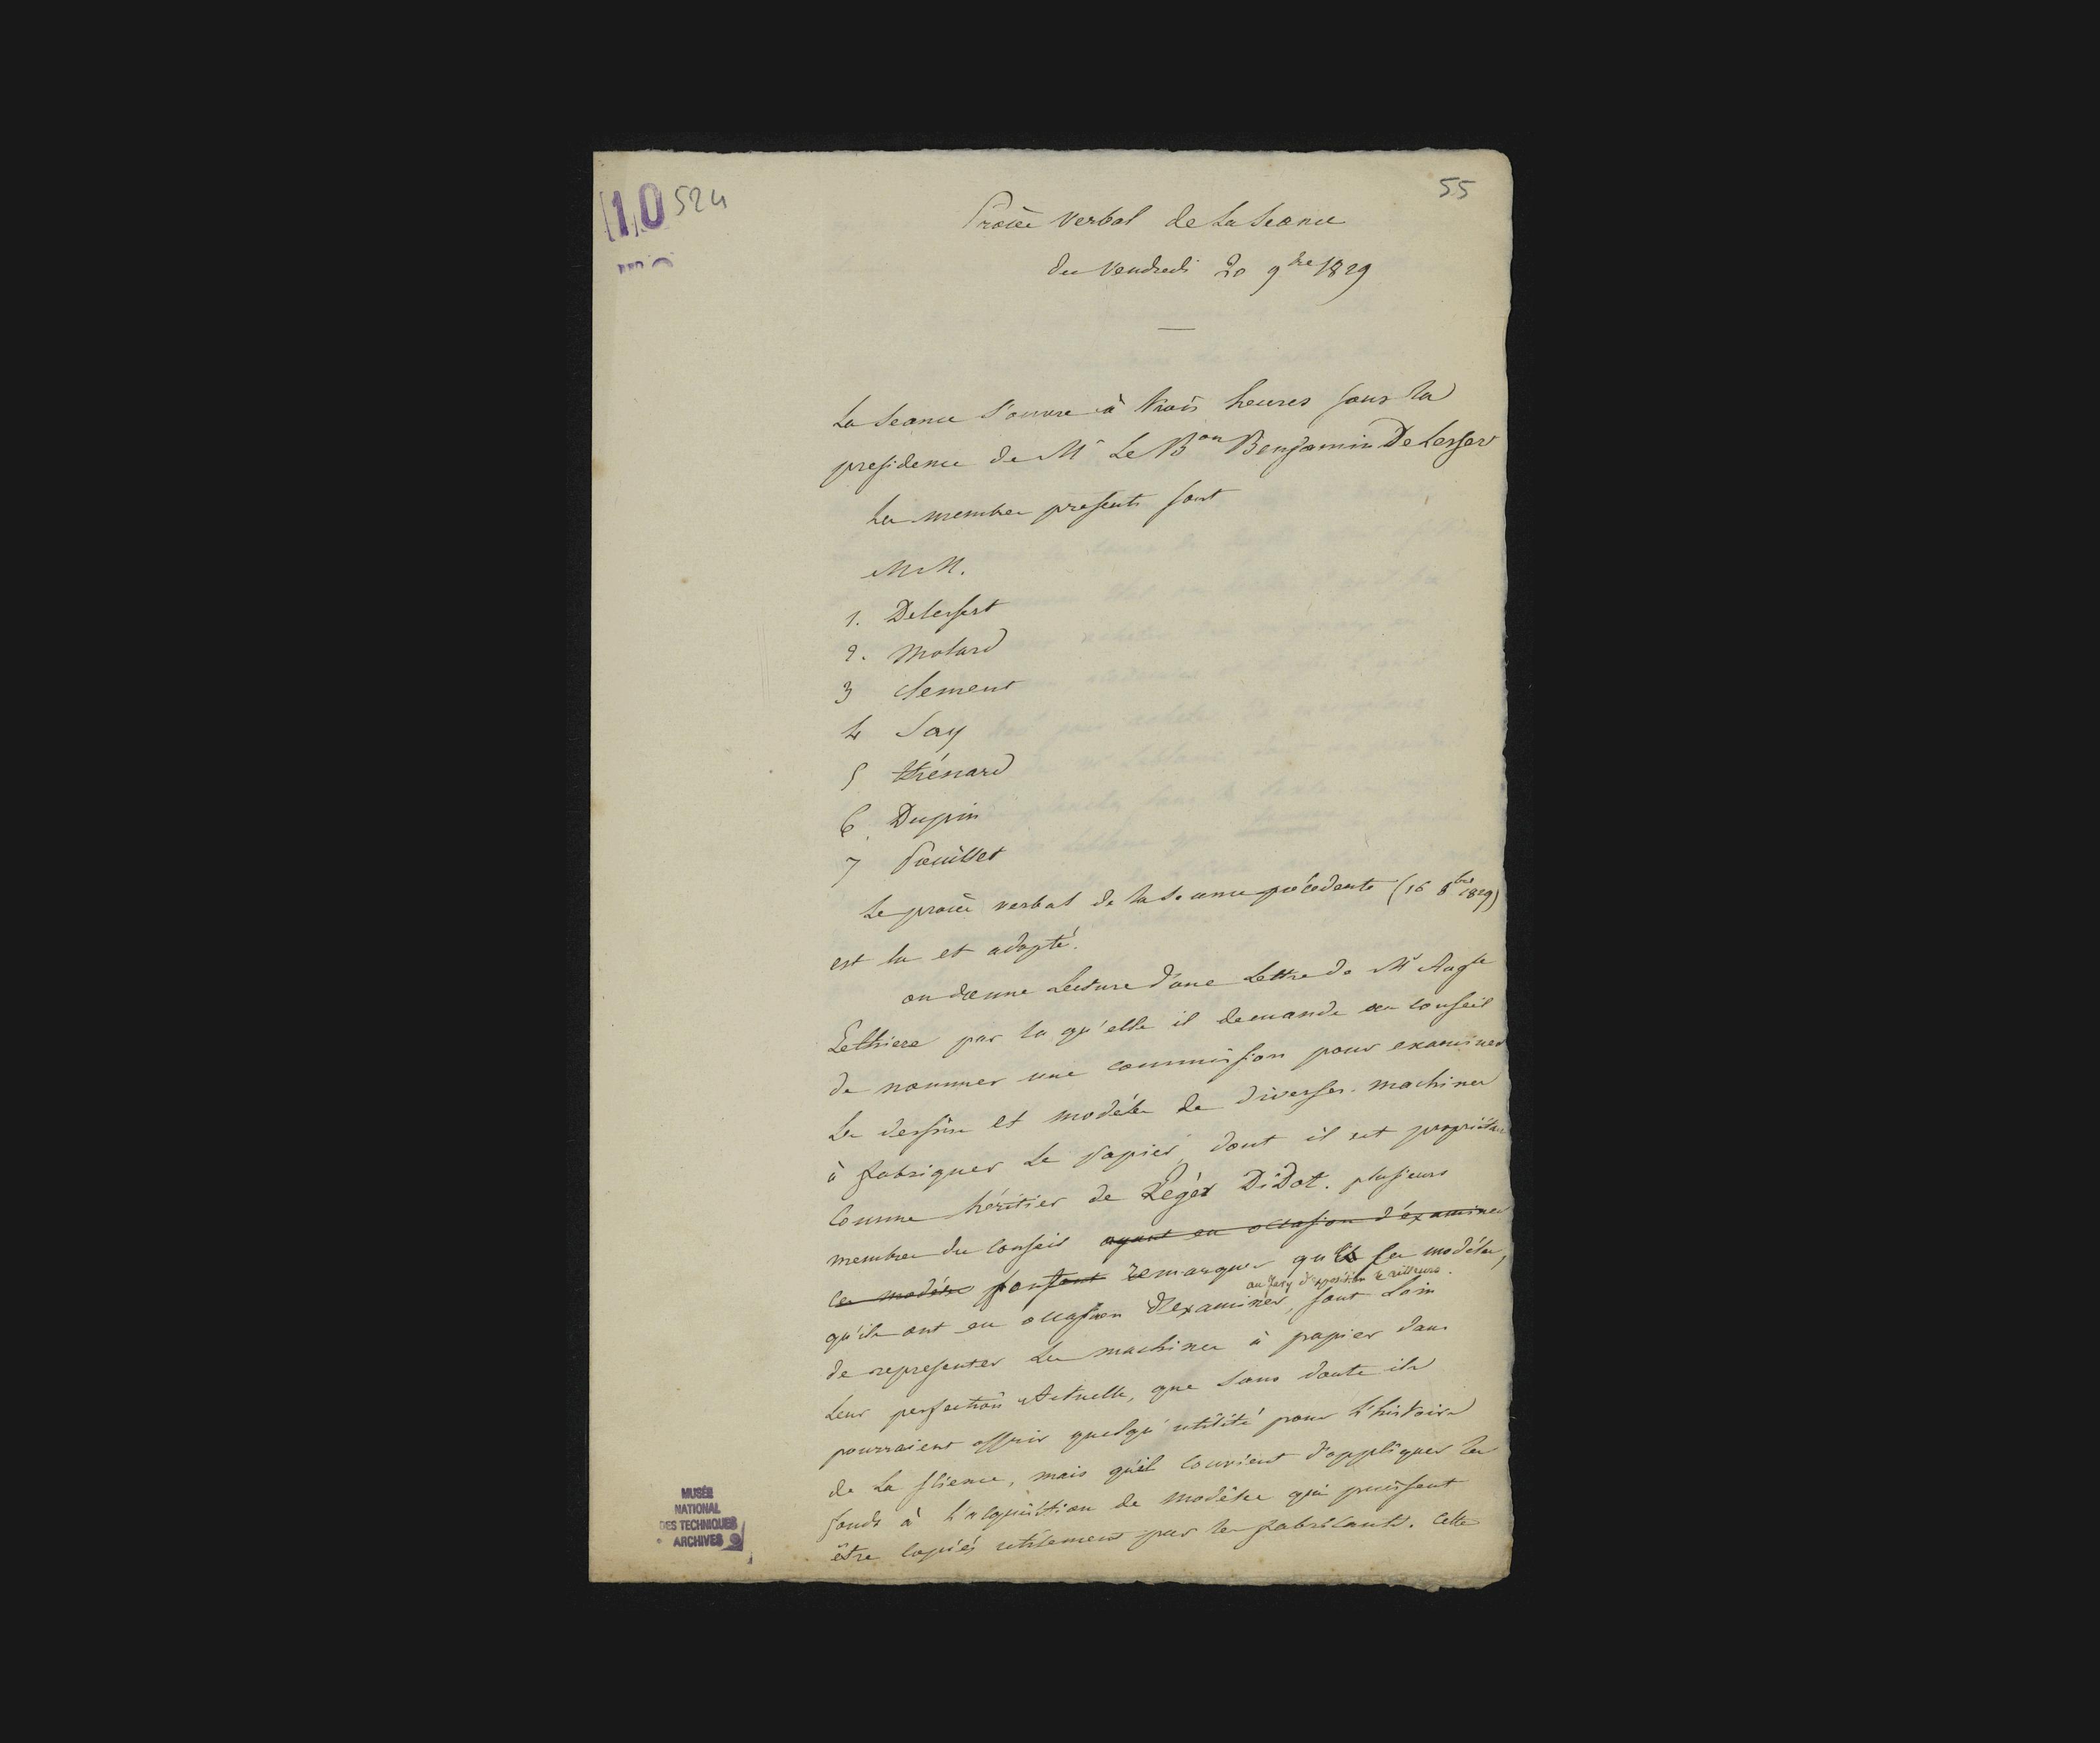 10 524
55
Procès verbal de La Seance
du Vendredi 20 9bre 1829
La Seance s'ouvre à trois heures sous la
presidence de Mr Le Bon Benjamin De Lessert
Les membres presents sont
MM.
1. Delessert
2. Molard
3 Clement
4 Say
5 thénard
6. Dupin
7 Pouillet
Le procès verbal de la Seance précédente (16 8bre 1829)
est lu et adopté.
on donne Lecture d'une Lettre de Mr Augte
Lethiere par la qu'elle il demande au conseil
de nommer une commission pour examiner
Les dessins et modèles de diverses machines
à fabriquer Le papier, dont il est propriétaire
Comme héritier de Léger Didot. plusieurs
membres du conseil ayant eu occasion d'éxaminer
ces modèles font remarquer que ces modèles,
au Jury d'exposition
qu'ils ont eu occasion d'examiner, sont Loin
de representer Les machines à papier dans
Leur perfection Actuelle, que sans doute ils
pourraient offrir quelqu'utilité pour L'histoire
de La Science, mais qu'il convient d'appliquer les
fonds à L'acquisition de modèles qui puissent
être copiés utilement par les fabricants. Cette
MUSÉE
NATIONAL
DES TECHNIQUES
ARCHIVES